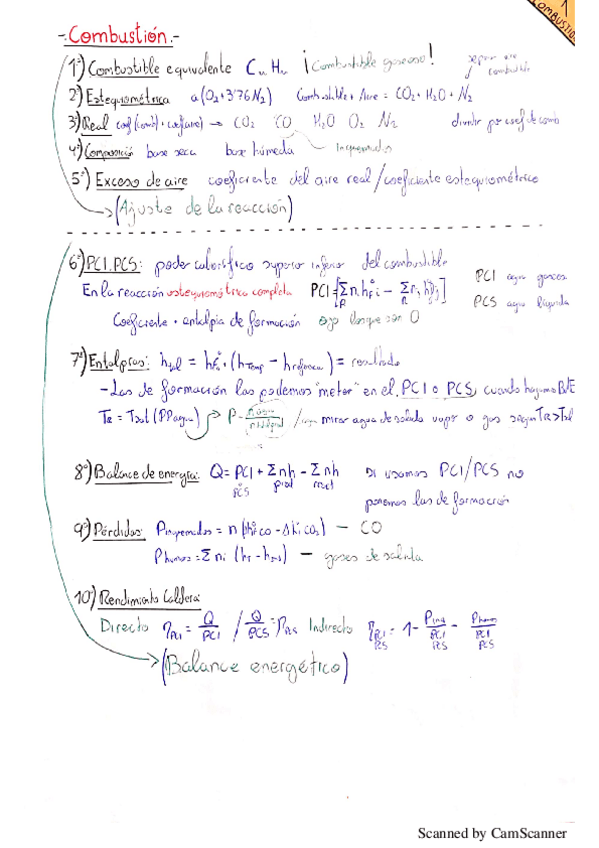 COMBUSTIÓN
-. Combustión.-
1º) Combustible equivalente CnHm ¡Combustible gaseoso!
2º) Estequiométrica a(O2+3'76N2) Combustible + Aire = CO2 + H2O + N2
3º) Real coef(comb) + coef(aire) → CO2 CO H2O O2 N2 dividir por coef de comb
4º) Composición base seca base húmeda Inquemados
5º) Exceso de aire coeficiente del aire real / coeficiente estequiométrico
(Ajuste de la reacción)
6º) PCI.PCS: poder calorífico superior inferior del combustible
En la reacción estequiométrica completa PCI=[Σ n h°f i - Σ nj h°fj] PCI agua gaseosa
P R PCS agua líquida
Coeficiente · entalpia de formación ojo las que son 0
7º) Entalpías: = hf° + (hTemp - hreferencia) = resultado
- Las de formación las podemos "meter" en el PCI o PCS, cuando hagamos
TR = Tsat (PPagua) P · mirar agua de salida vapor o gas según TR>Tsal
8º) Balance de energía: Q = PCI + Σnh - Σnh Si usamos PCI/PCS no
PCS prod react ponemos las de formación
9º) Pérdidas: Pinquemados = n (hf°co - Δhf°co2) — CO
Phumos = Σ ni (hT - href) — gases de salida
10º) Rendimiento Caldera:
Directo ηPCI = Q/PCI / Q/PCS = ηPCS Indirecto ηPCI PCS = 1 - Pinq/PCI PCS - Phum/PCI PCS
(Balance energético)
Scanned by CamScanner